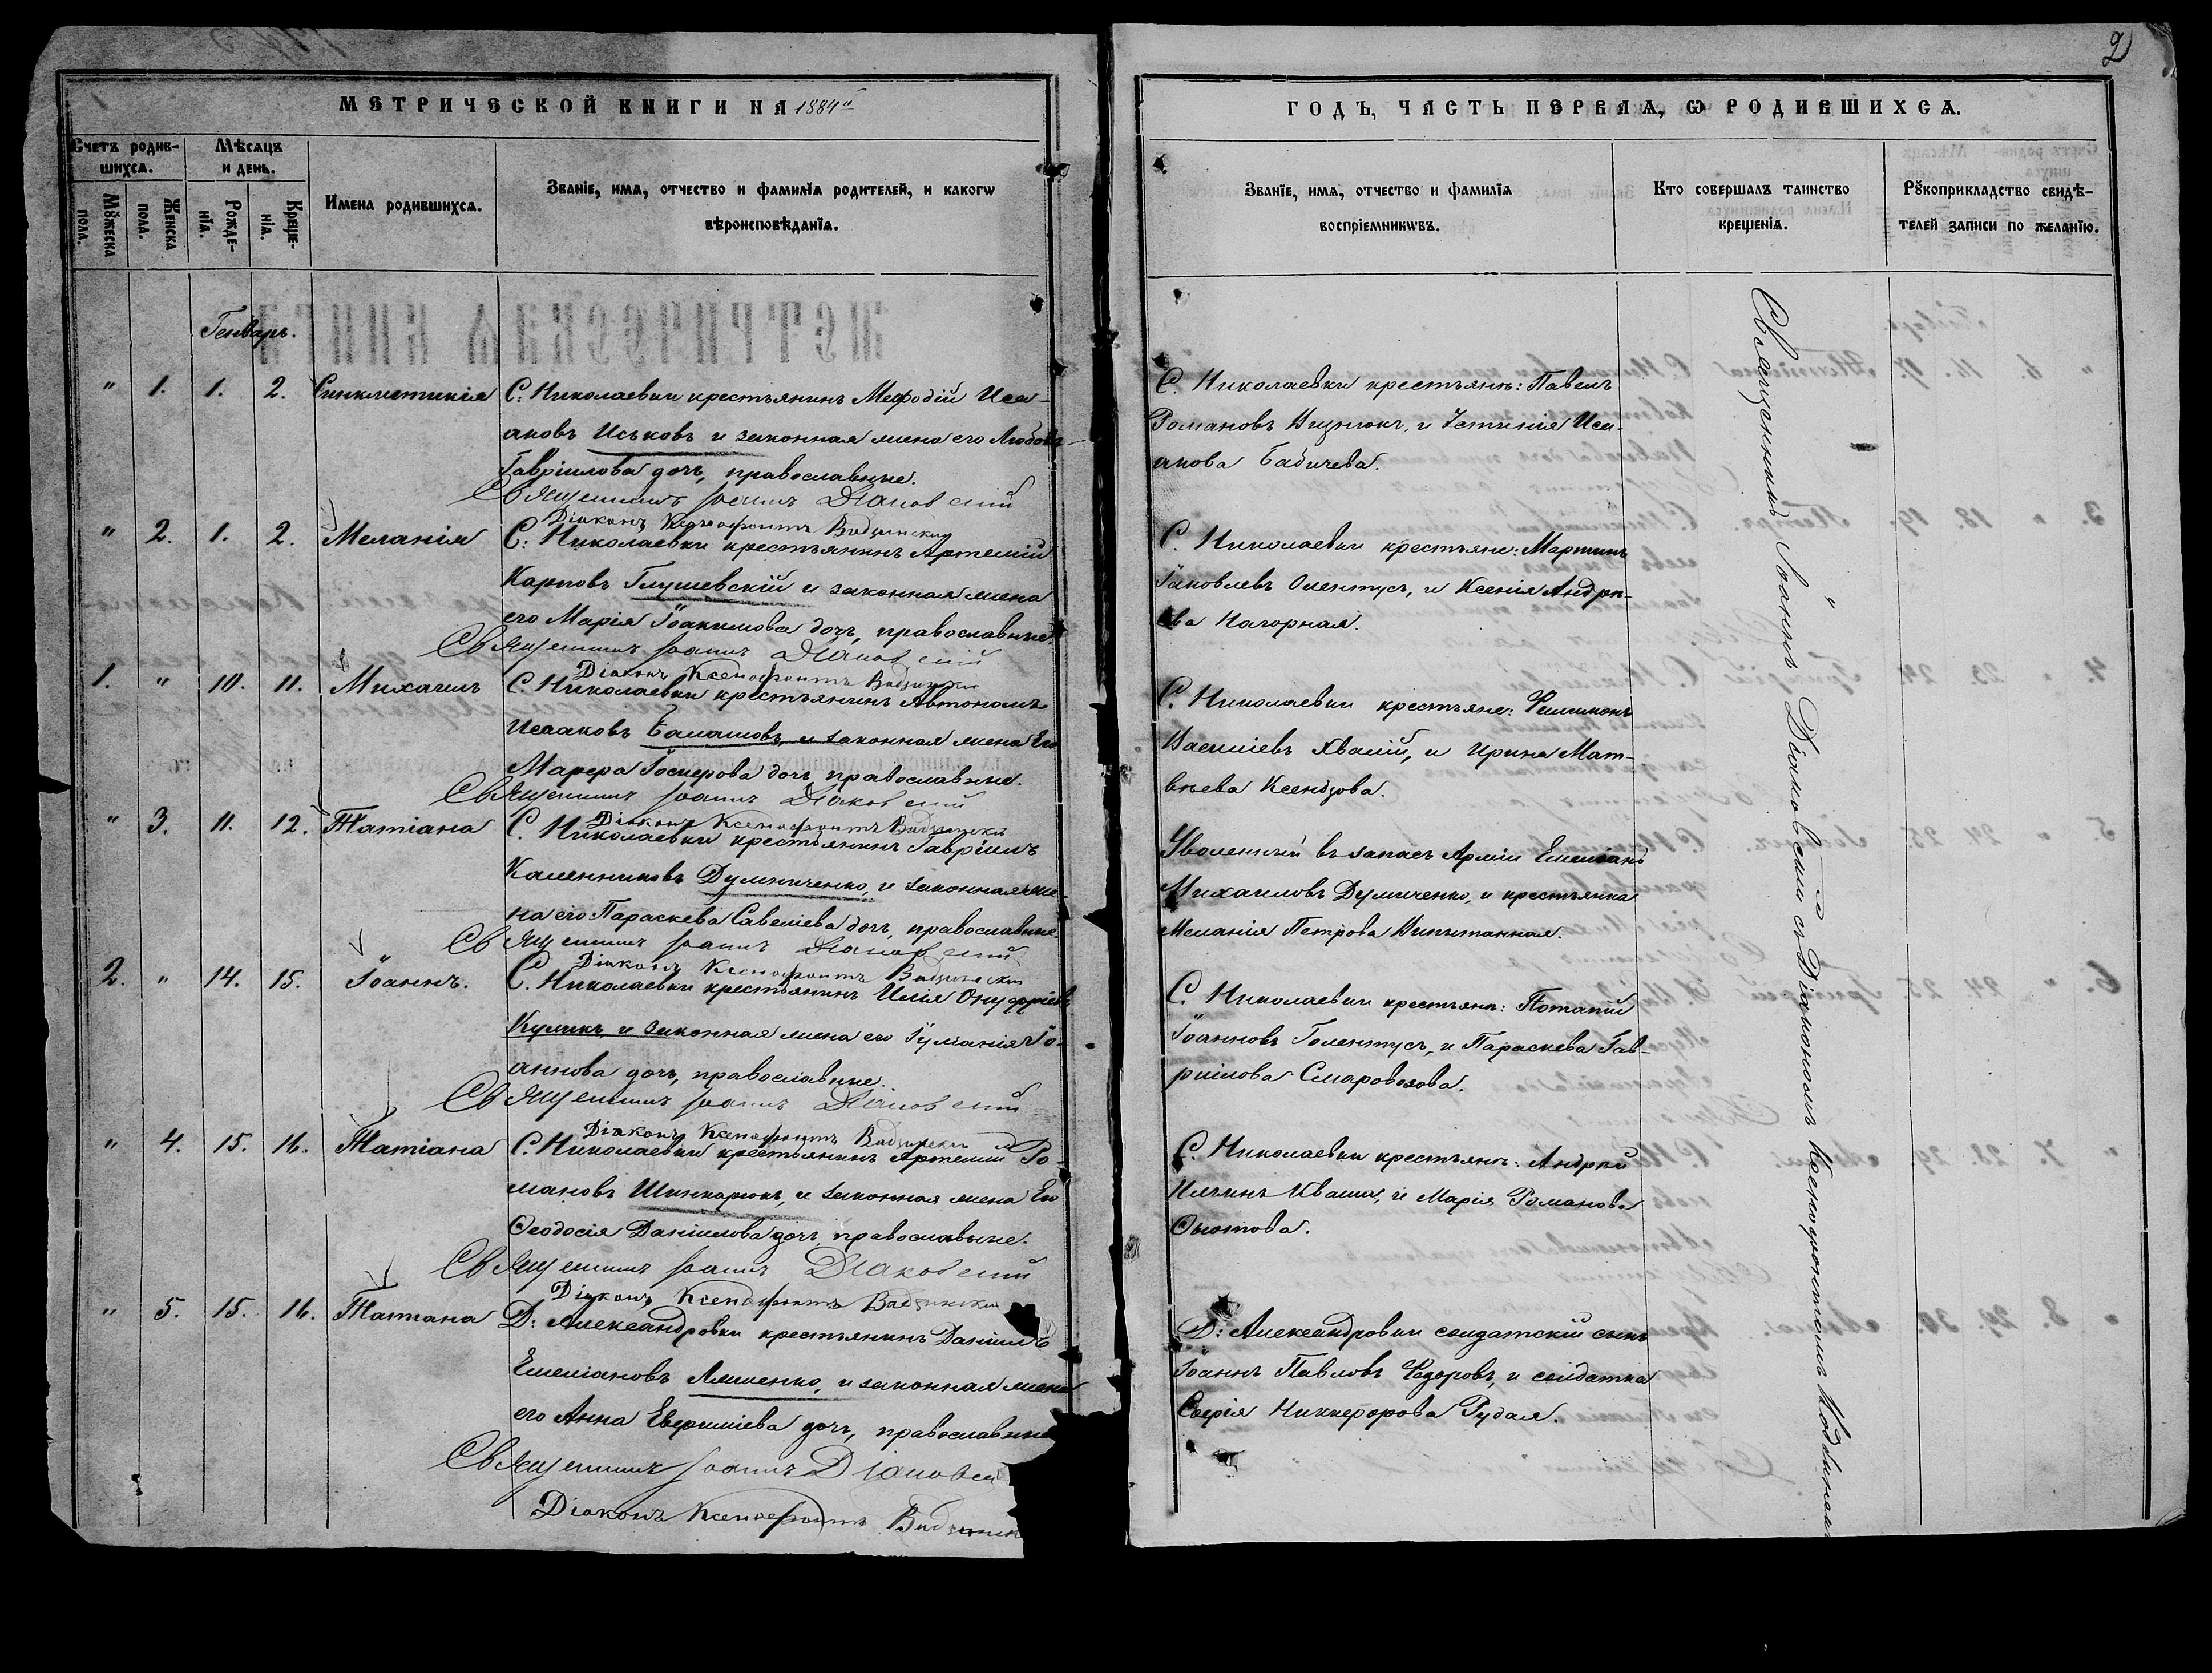 2
МЕТРИЧЕСКОЙ КНИГИ НА 1884й
ГОДЪ, ЧАСТЬ ПЕРВАѦ, Ѡ РОДИВШИХСѦ.
Счетъ родив-
шихсѧ.
Мѣсѧцъ
и день.
Мꙋжеска
пола.
Женска
пола.
Рожде-
нїѧ.
Креще-
нїѧ.
Имена родившихсѧ.
Званїе, имѧ, отчество и фамилїѧ родителей, и какогѡ
вѣроисповѣданїѧ.
Званїе, имѧ, отчество и фамилїѧ
воспрїемникѡвъ.
Кто совершалъ таинство
крещенїѧ.
Рꙋкоприкладство свидѣ-
телей записи по желанїю.
Генварь.
" 1. 1. 2. Синклитикія
С. Николаевки крестьянинъ Мефодій Иса-
аковъ Иськовъ и законная жена его Любовь
Гавріилова дочь, православные.
Священникъ Іоаннъ Діаковскій
Діаконъ Ксенофонтъ
С. Николаевки крестьяне: Павелъ
Романовъ и Устинія Иса-
акова Бабичева.
" 2. 1. 2. Меланія
С. Николаевки крестьянинъ Артемій
Карповъ Глушевскій и законная жена
его Марія Іоакимова дочь, православные.
Священникъ Іоаннъ Діаковскій
Діаконъ Ксенофонтъ
С. Николаевки крестьяне: Мартинъ
Іаковлевъ Олентусъ, и Ксенія Андре-
ева Нагорная.
1. " 10. 11. Михаилъ
С. Николаевки крестьянинъ Автономъ
Исааковъ Балашовъ, и законная жена Его
Марѳа Іосифова дочь, православные.
Священникъ Іоаннъ Діаковскій
Діаконъ Ксенофонтъ
С. Николаевки крестьяне: Филимонъ
Василіевъ Хвалій, и Ирина Мат-
вѣева Ксендзова.
" 3. 11. 12. Татіана
С. Николаевки крестьянинъ Гавріилъ
Каленниковъ Думниченко, и законная же-
на его Параскева Савеліева дочь, православные.
Священникъ Іоаннъ Діаковскій
Діаконъ Ксенофонтъ
Уволенный въ запасъ Арміи Емеліанъ
Михаиловъ Думиченко, и крестьянка
Меланія Петрова
2. " 14. 15. Іоаннъ.
С. Николаевки крестьянинъ Илія Онуфріевъ
Куликъ, и законная жена его Іуліанія Іо-
аннова дочь, православные.
Священникъ Іоаннъ Діаковскій
Діаконъ Ксенофонтъ
С. Николаевки крестьяне: Потапій
Іоанновъ Голентусъ, и Параскева Гав-
ріилова Смаровозова.
" 4. 15. 16. Татіана
С. Николаевки крестьянинъ Артемій Ро-
мановъ Шинкарюкъ, и законная жена Его
Ѳеодосія Даніилова дочь, православные.
Священникъ Іоаннъ Діаковскій
Діаконъ Ксенофонтъ
С. Николаевки крестьяне: Андрей
Ильинъ Ивашъ, и Марія Романова
" 5. 15. 16. Татіана
Д: Александровки крестьянинъ Даніилъ
Емеліановъ Ляшенко, и законная жена
его Анна Евфиміева дочь, православные
Священникъ Іоаннъ Діаковс
Діаконъ Ксенофонтъ
Д: Александровки солдатскій сынъ
Іоаннъ Павловъ Федоровъ, и солдатка
Софія Никифорова Рудая.
Священникъ Іоаннъ Діаковскій съ Діакономъ Ксенофонтомъ